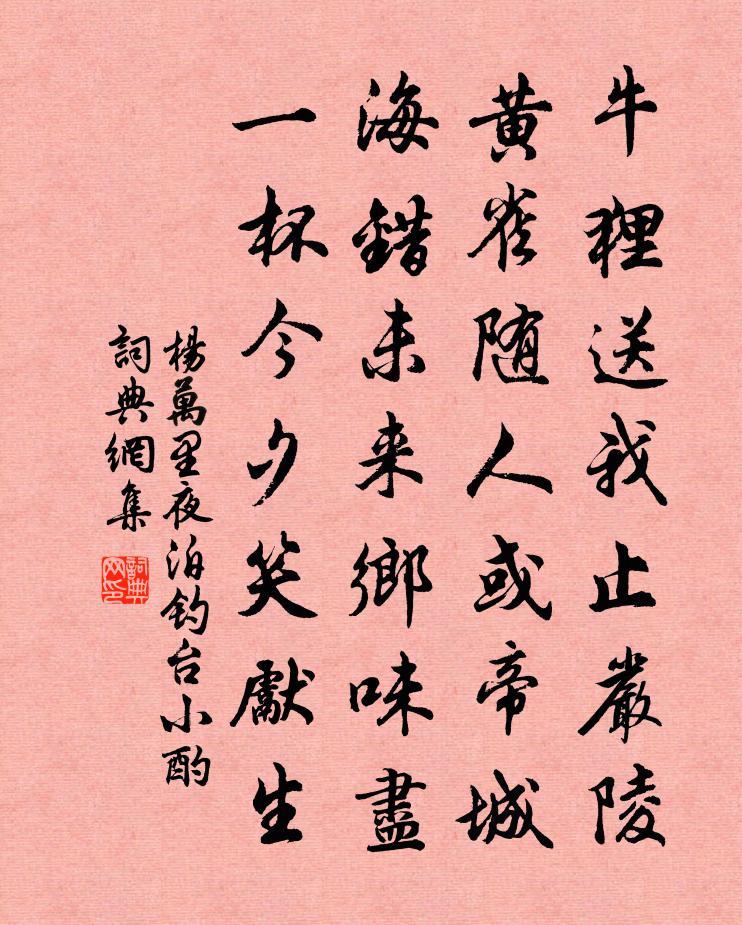 牛狸送我止嚴陵
黄雀随人或帝城
海錯未来鄉味盡
一杯今夕笑獻生
楊萬里夜泊釣台小酌
詞典網集
詞典网印